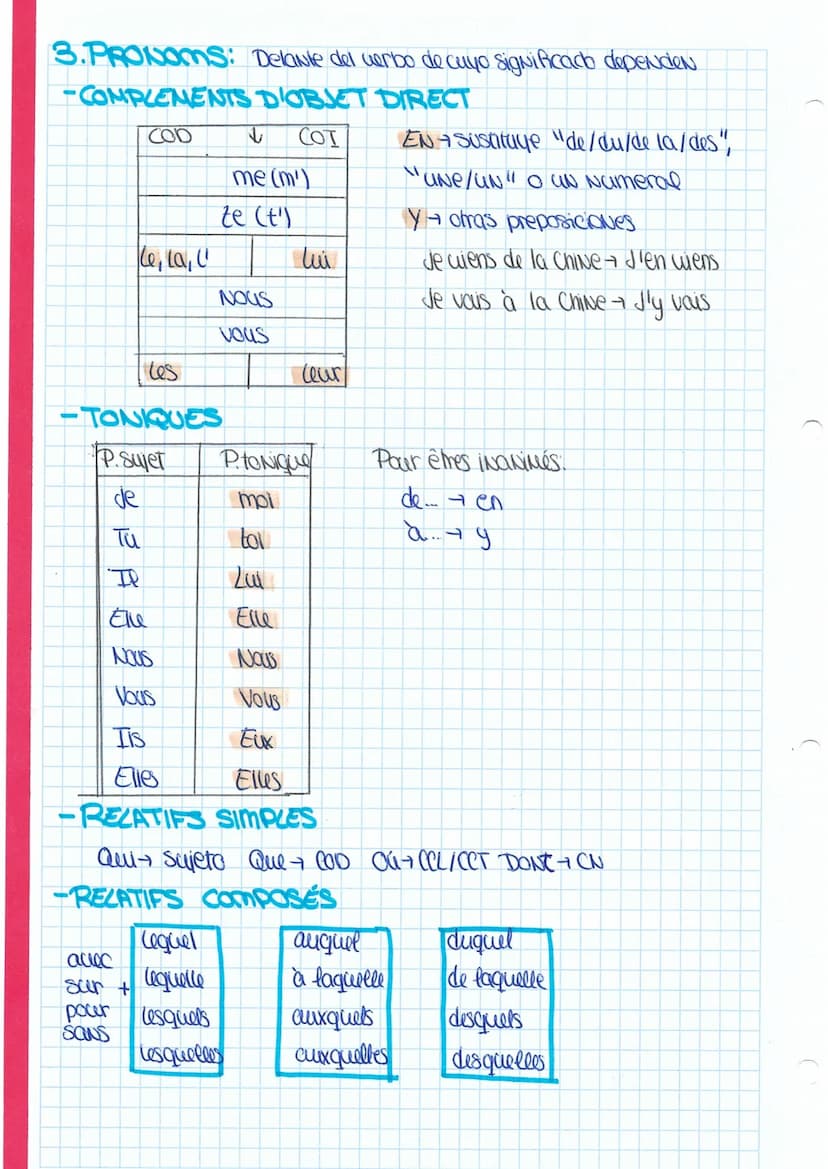 3. PRONOMS: Delante del verbo de cuyo significado dependen
- COMPLEMENTS D'OBJET DIRECT
COD ↓ COI
me (m')
te (t')
le, la, l' lui
NOUS
VOUS
les leur
EN → sustituye "de/du/de la/des",
"une/un" o un numeral
Y → otras preposiciones
Je viens de la Chine → J'en viens
Je vais à la Chine → J'y vais
- TONIQUES
P. sujet P. tonique
Je moi
Tu toi
Il Lui
Elle Elle
Nous Nous
Vous Vous
Ils Eux
Elles Elles
Pour êtres inanimés:
de... → en
à... → y
- RELATIFS SIMPLES
Qui → Sujeto Que → COD Où → CCL/CCT DONT → CN
- RELATIFS COMPOSÉS
avec
sur +
pour
sans
lequel
lequelle
lesquels
lesquelles
auquel
à laquelle
auxquels
auxquelles
duquel
de laquelle
desquels
desquelles